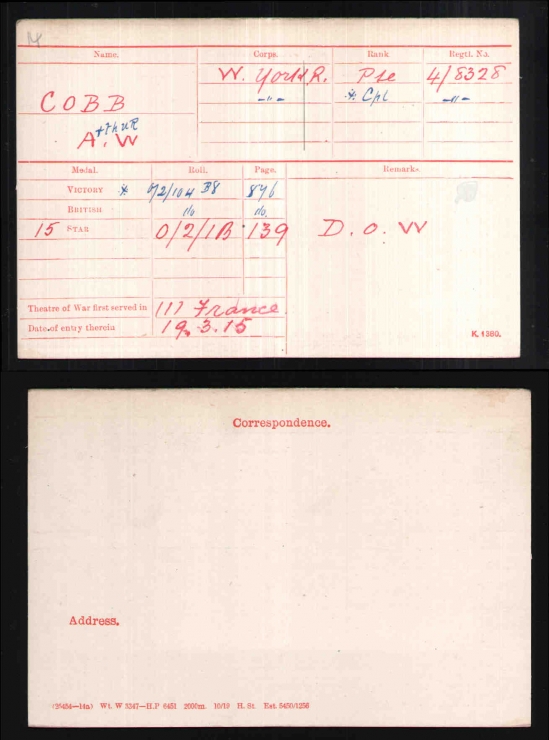 Name. Corps. Rank Regtl. No.
W. York R. Pte 4/8328
COBB -"- * Cpl -"-
A. W
rthur
Medal. Roll. Page. Remarks.
VICTORY * O/2/104 B8 896
BRITISH do do.
15 STAR O/2/1B 139 D. o. W
Theatre of War first served in (1) France
Date of entry therein 19.3.15
K. 1380.
Correspondence.
Address.
(25434—14a) Wt. W 3347—H.P 6451 2000m. 10/19 H. St. Est. 5450/1256